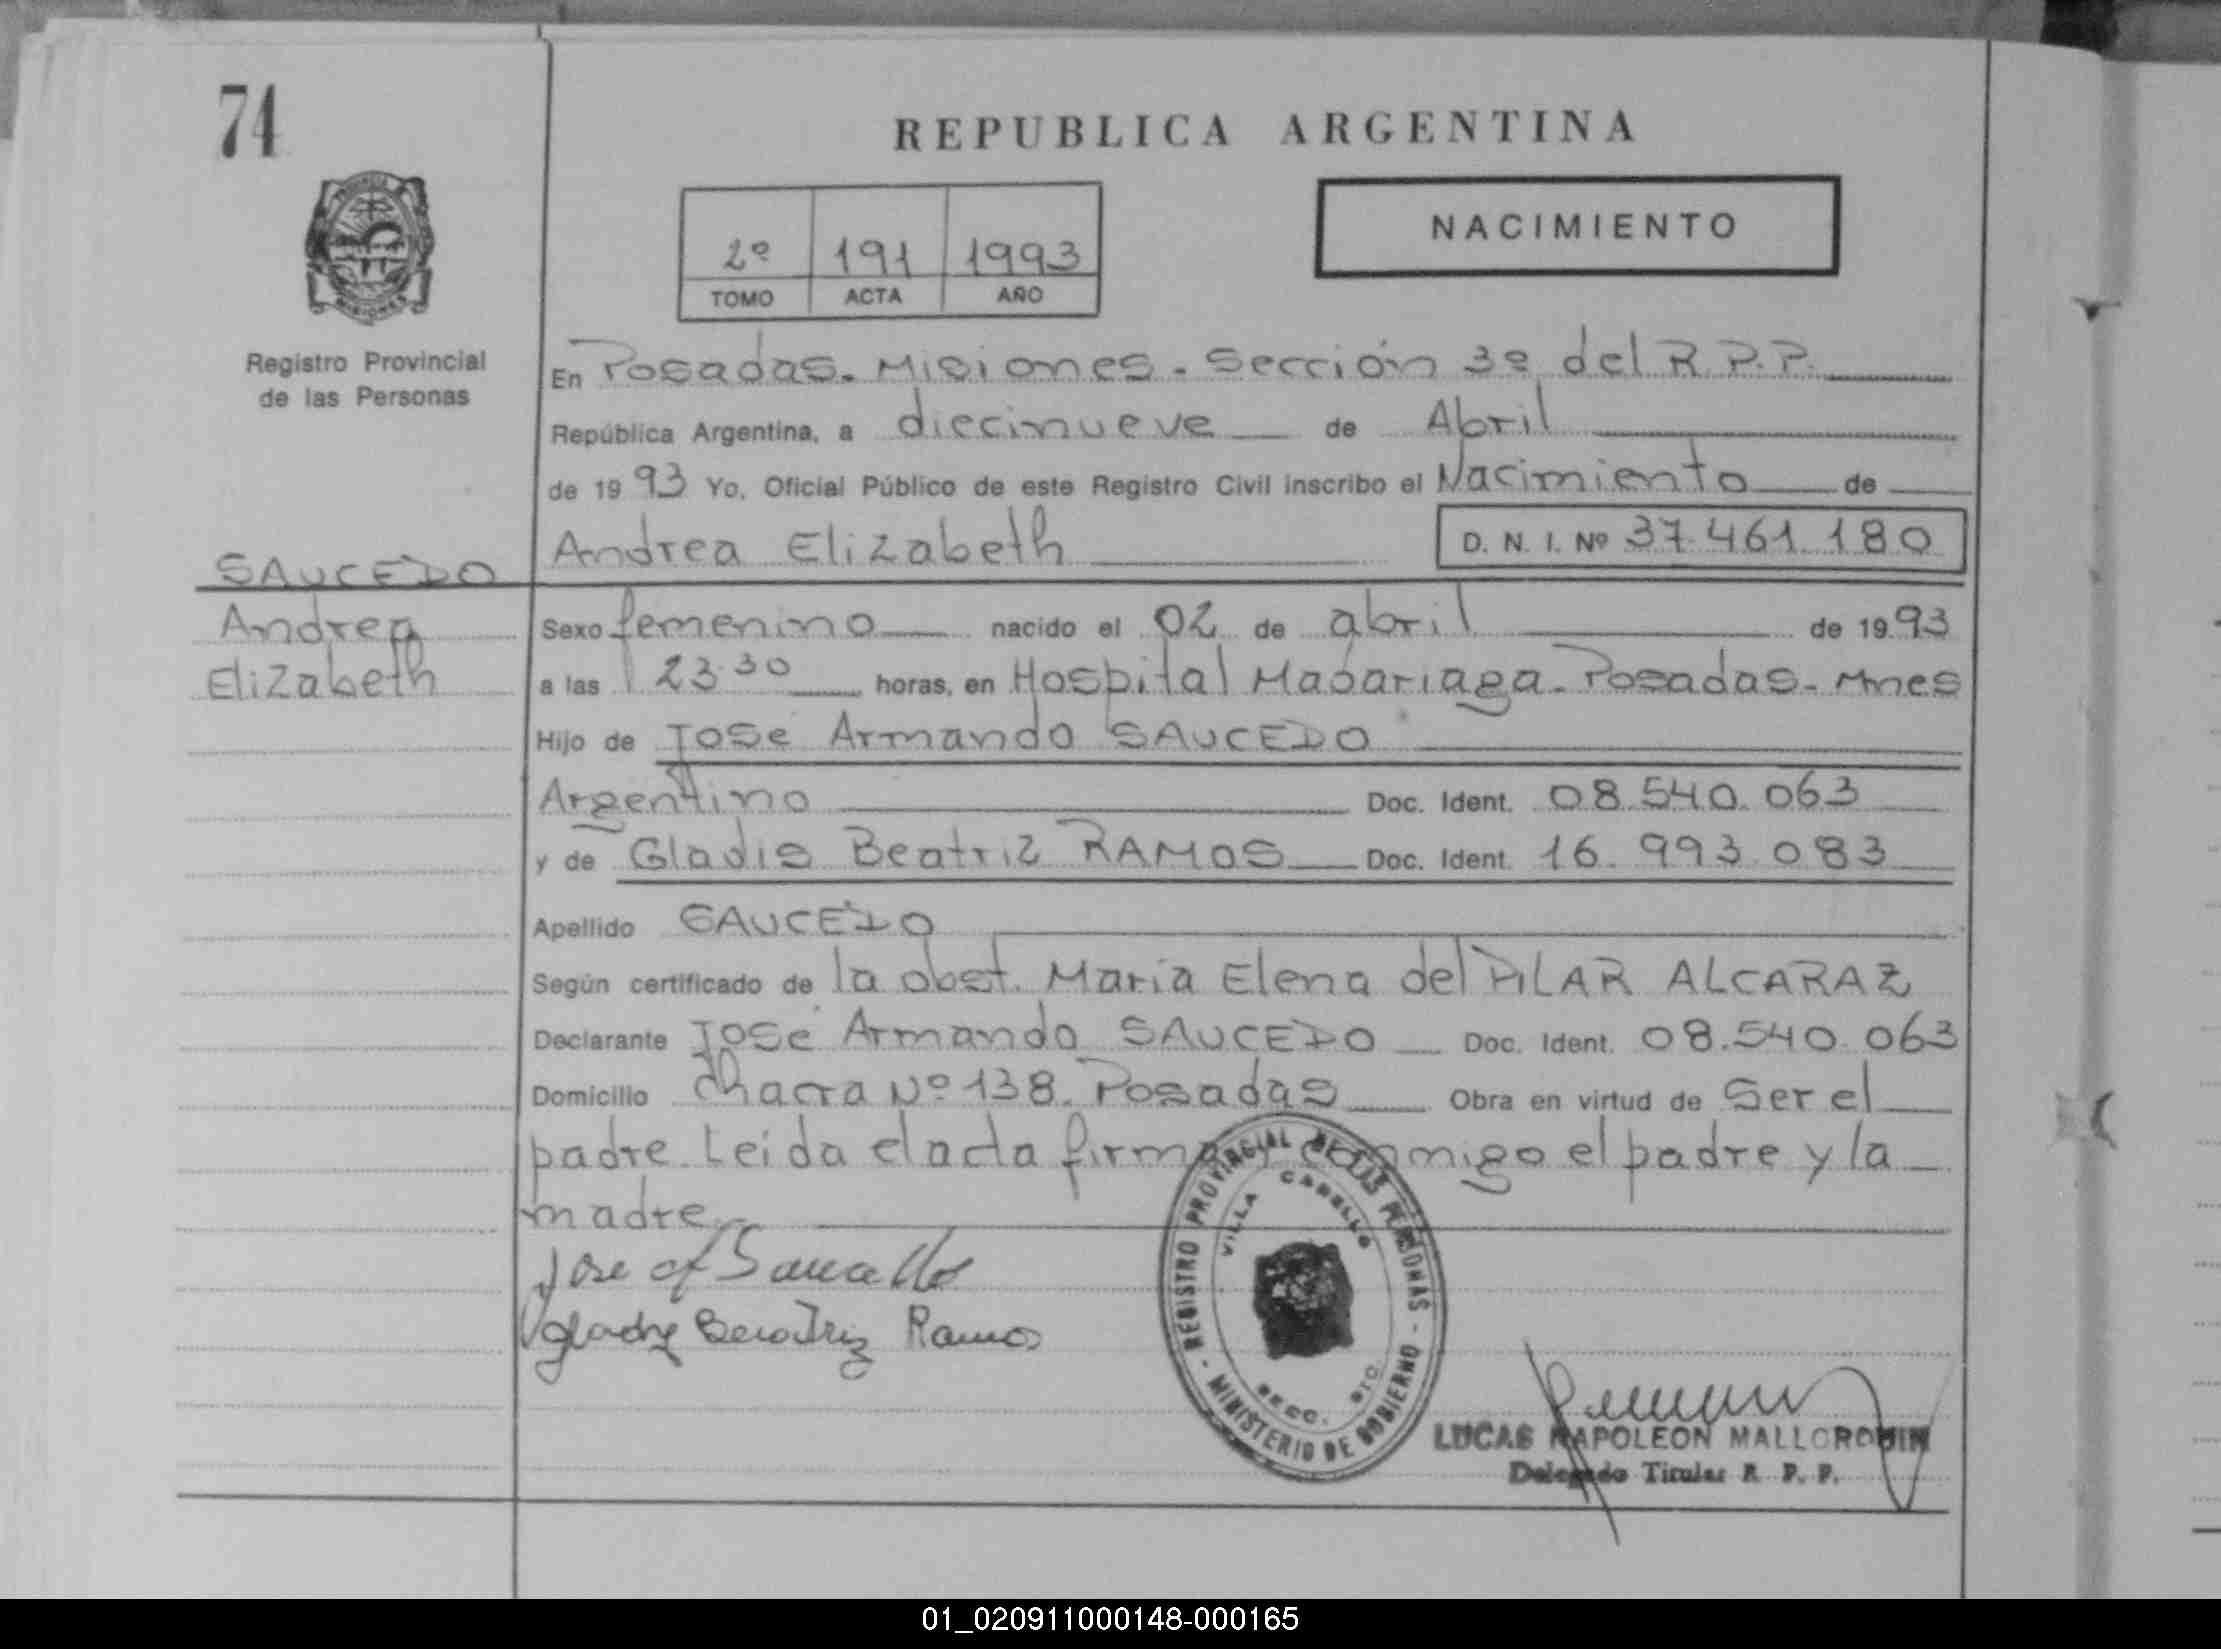 74
REPUBLICA ARGENTINA
NACIMIENTO
2º 191 1993
TOMO ACTA AÑO
MISIONES
Registro Provincial
de las Personas
En Posadas. Misiones. Sección 3º del R.P.P.
República Argentina, a diecinueve de Abril
de 1993 Yo, Oficial Público de este Registro Civil inscribo el Nacimiento de
Andrea Elizabeth D. N. I. Nº 37.461.180
SAUCEDO
Andrea
Elizabeth
Sexo femenino nacido el 02 de abril de 1993
a las 23.30 horas, en Hospital Madariaga. Posadas. Mnes
Hijo de José Armando SAUCEDO
Argentino Doc. Ident. 08.540.063
y de Gladis Beatriz RAMOS Doc. Ident. 16.993.083
Apellido SAUCEDO
Según certificado de la obst. María Elena del PILAR ALCARAZ
Declarante José Armando SAUCEDO Doc. Ident. 08.540.063
Domicilio Chacra Nº 138. Posadas Obra en virtud de Ser el
padre. Leida el acta firman conmigo el padre y la
madre.
Jose A Saucedo
Gladys Beatriz Ramos
REGISTRO PROVINCIAL DE LAS PERSONAS
VILLA CABELLO
SECC.
MINISTERIO DE GOBIERNO
LUCAS NAPOLEON MALLORQUIN
Delegado Titular R. P. P.
01_020911000148-000165